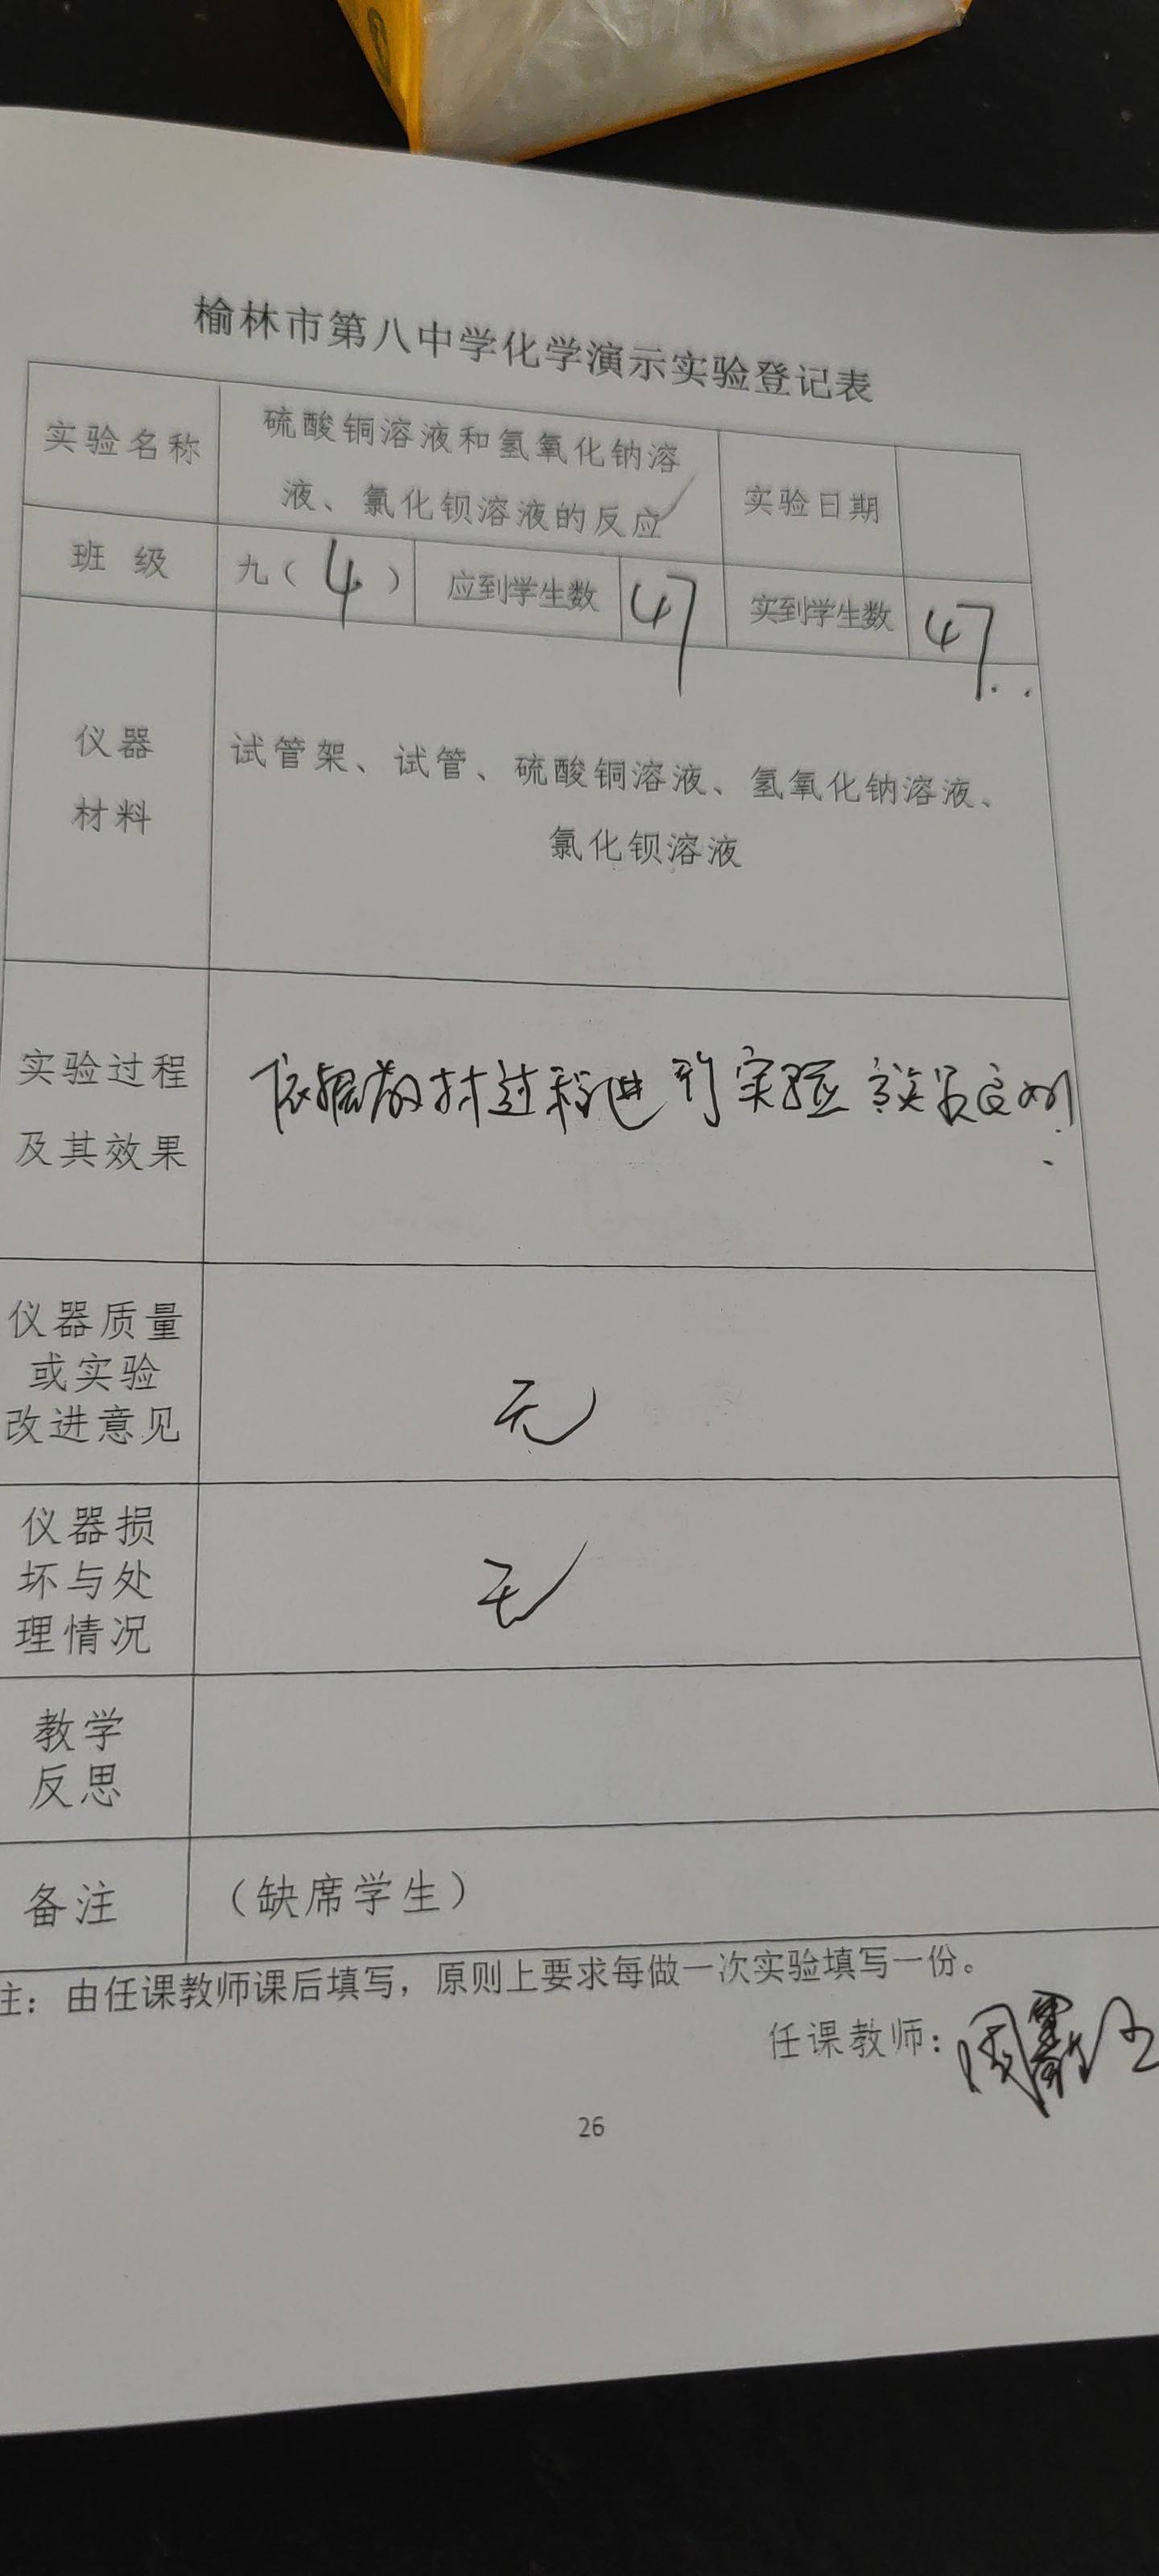 榆林市第八中学化学演示实验登记表
实验名称
硫酸铜溶液和氢氧化钠溶
液、氯化钡溶液的反应
实验日期
班 级
九（4）
应到学生数
47
实到学生数
47
仪器
材料
试管架、试管、硫酸铜溶液、氢氧化钠溶液、
氯化钡溶液
实验过程
及其效果
依据教材过程进行实验 效果良好
仪器质量
或实验
改进意见
无
仪器损
坏与处
理情况
无
教学
反思
备注
（缺席学生）
注：由任课教师课后填写，原则上要求每做一次实验填写一份。
任课教师：周
26